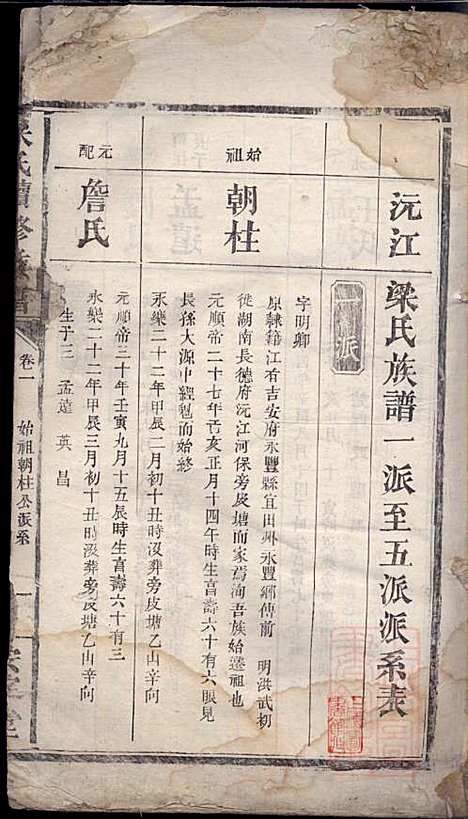 沅江梁氏族譜一派至五派派系表
一派
始祖
朝柱
字明卿
原隸籍江右吉安府永豐縣宜田州永豐鄉傅前 明洪武初
徙湖南長德府沅江河保旁皮塘而家焉洵吾族始遷祖也
元順帝二十七年亥正月十四午時生享壽六十有六眼見
長孫大源中經魁而始終
永樂二十二年甲辰二月初十丑時沒葬旁皮塘乙山辛向
元配
詹氏
元順帝三十年壬寅九月十五辰時生享壽六十有三
永樂二十二年甲辰三月初十丑時沒葬旁皮塘乙山辛向
生子三 孟達 英 昌
梁氏續修族譜
卷一
始祖朝柱公派系
一